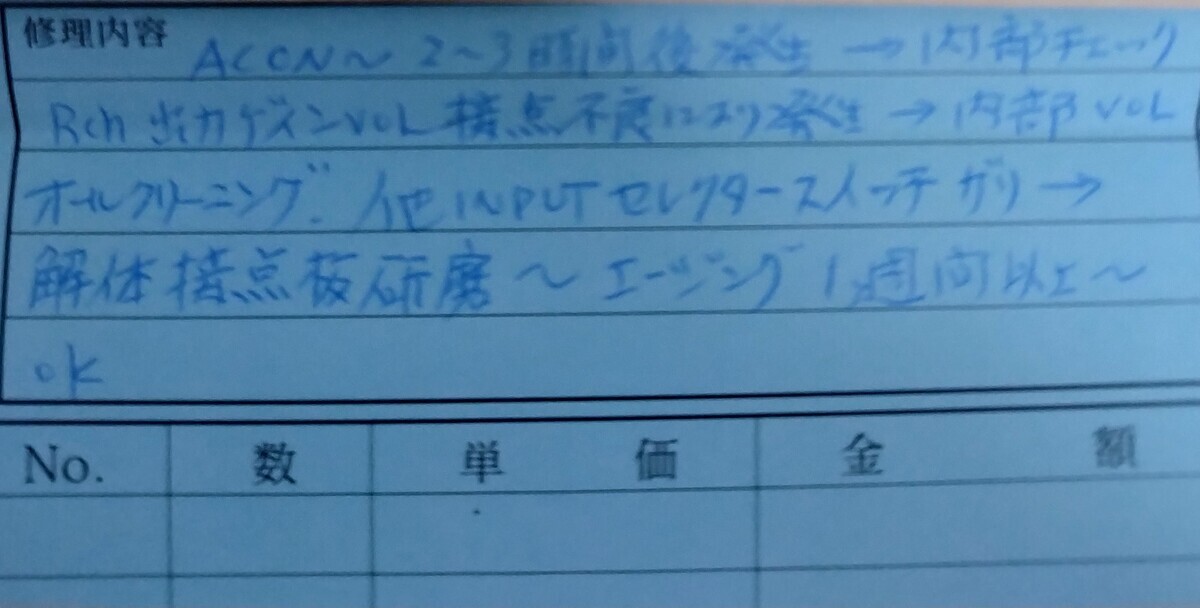 修理内容
ACON～2～3時間後発生→内部チェック
Rch 出力ゲインVOL接点不良により発生→内部VOL
オールクリーニング．他INPUTセレクタースイッチガリ→
解体接点板研磨～エージング1週間以上～
ok
No. 数 単価 金額